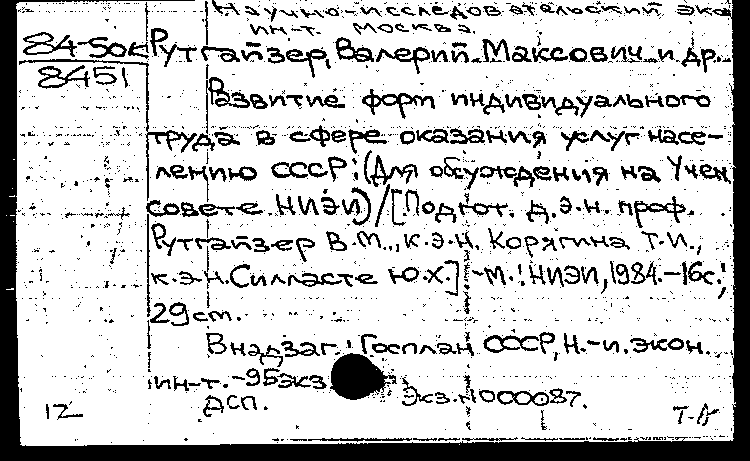 Научно-исследовательский эко
ин-т. Москва.
84-50к
8451
Рутгайзер, Валерий Максович и др.
Развитие форм индивидуального
труда в сфере оказания услуг насе-
лению СССР: (Для обсуждения на Учен
совете НИЭИ) / [Подгот. д.э.н. проф.
Рутгайзер В.М., к.э.н. Корягина Т.И.,
к.э.н. Силласте Ю.Х.] -М.: НИЭИ, 1984.-16с.;
29cm.
В надзаг.: Госплан СССР, Н.-и. экон.
ин-т. -95экз
ДСП. Экз.N000087.
12 Т-А